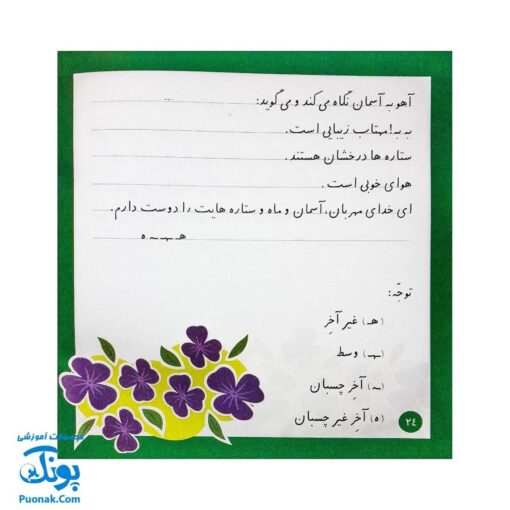 آهو به آسمان نگاه می کند و می گوید:
به به! مهتاب زیبایی است.
ستاره ها درخشان هستند.
هوای خوبی است.
ای خدای مهربان، آسمان و ماه و ستاره هایت را دوست دارم.
هـ ـهـ ـه ه
توجّه:
(هـ) غیر آخرِ
(ـهـ) وسط
(ـه) آخرِ چسبان
(ه) آخرِ غیر چسبان
۲۴
محصولات آموزشی
پونک
Puonak.Com